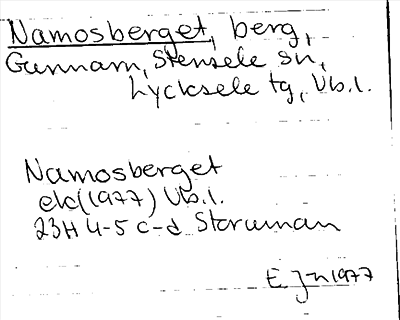 Namosberget, berg,
Gunnarn, Stensele sn,
Lycksele tg, Vb.l.
Namosberget
ek(1977) Vb.l.
23H 4-5 c-d Storuman
E J-n 1977